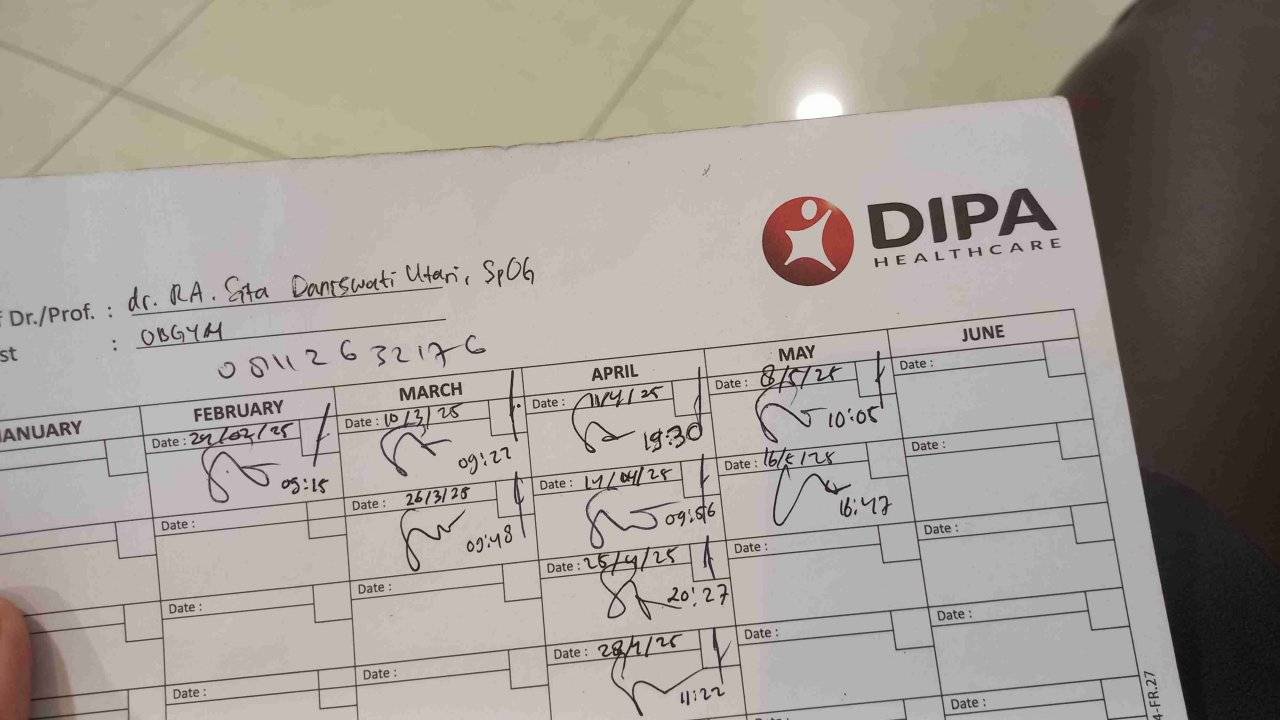 DIPA
HEALTHCARE
Dr./Prof. : dr. RA. Sita Danrswati Utari, SpOG
st : OBGYN
0811 263 2176
ANUARY FEBRUARY MARCH APRIL MAY JUNE
Date : 24/02/25 09:15
Date : 10/3/25 09:22
Date : 11/4/25 19:30
Date : 8/5/25 10:05
Date :
Date :
Date : 26/3/25 09:48
Date : 14/04/25 09:56
Date : 16/5/25 16:47
Date :
Date :
Date :
Date : 25/4/25 20:27
Date :
Date :
Date :
Date :
Date : 28/4/25 11:22
Date :
Date :
Date :
4-FR.27